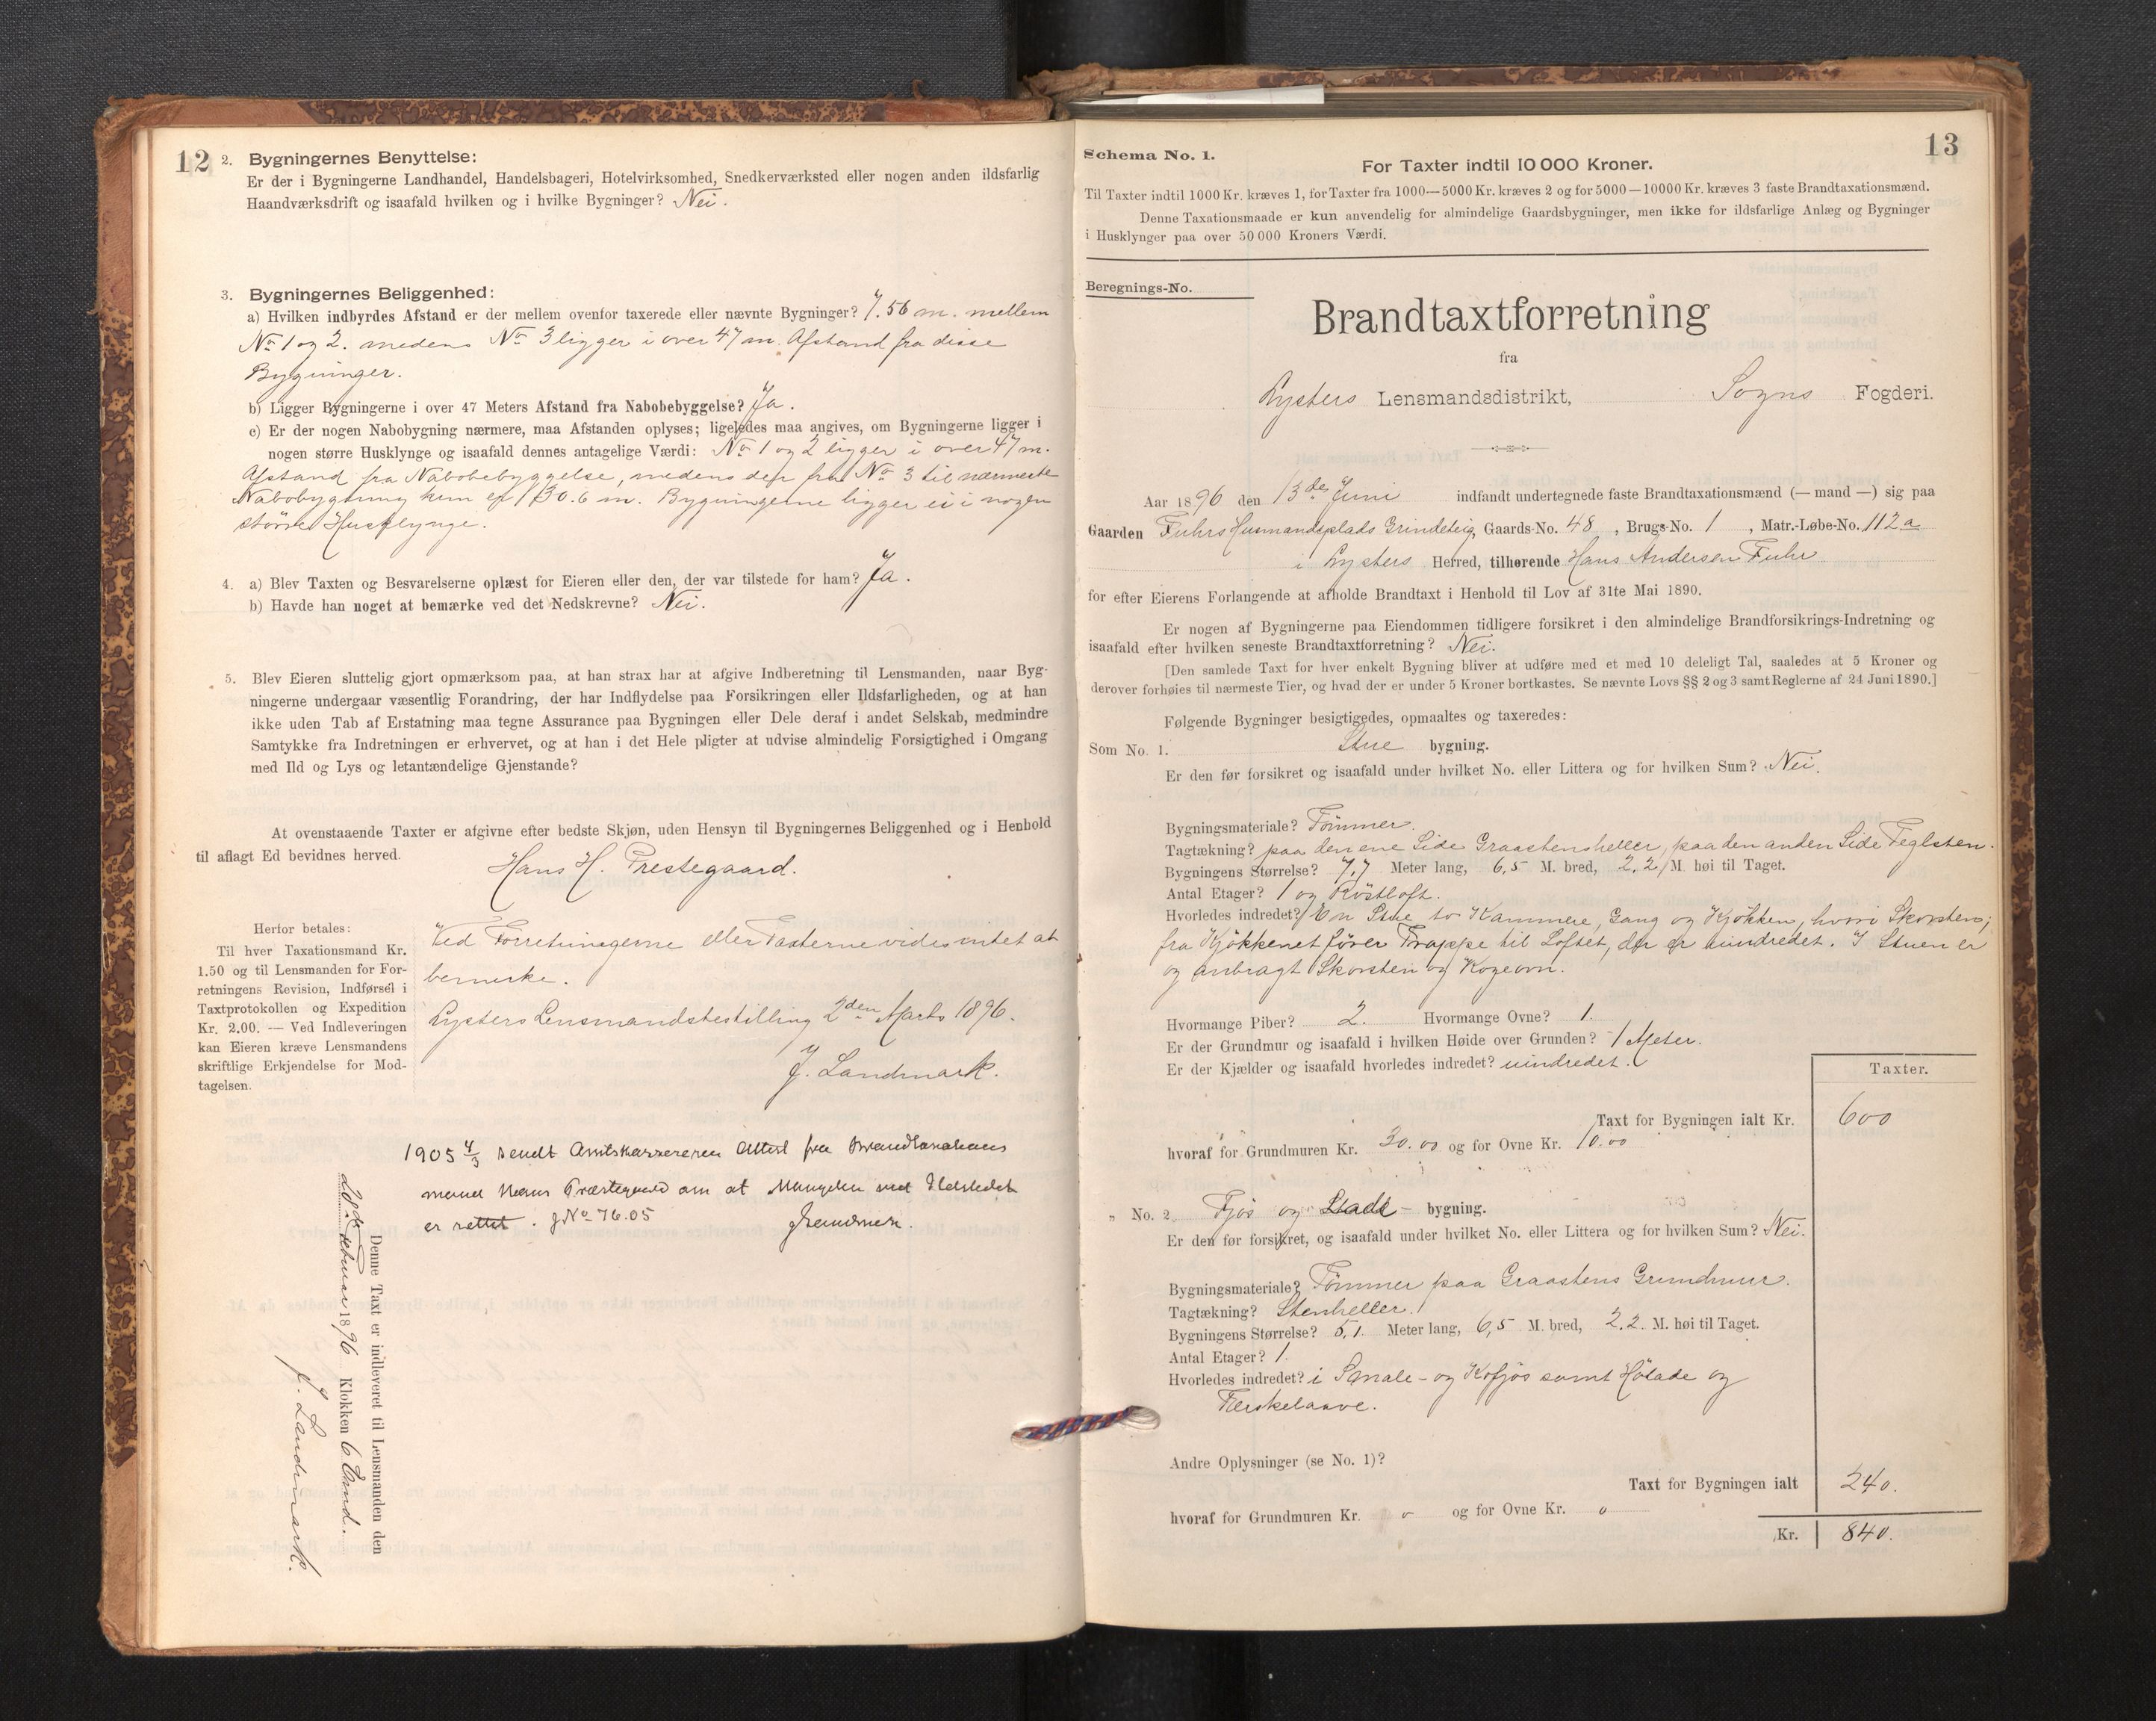 12
2. Bygningernes Benyttelse:
Er der i Bygningerne Landhandel, Handelsbageri, Hotelvirksomhed, Snedkerværksted eller nogen anden ildsfarlig
Haandværksdrift og isaafald hvilken og i hvilke Bygninger? Nei.
3. Bygningernes Beliggenhed:
a) Hvilken indbyrdes Afstand er der mellem ovenfor taxerede eller nævnte Bygninger? 7.56 m. mellem
No 1 og 2. medens No 3 ligger i over 47 m. Afstand fra disse
Bygninger.
b) Ligger Bygningerne i over 47 Meters Afstand fra Nabobebyggelse? Ja.
c) Er der nogen Nabobygning nærmere, maa Afstanden oplyses; ligeledes maa angives, om Bygningerne ligger i
nogen større Husklynge og isaafald dennes antagelige Værdi: No 1 og 2 ligger i over 47 m.
Afstand fra Nabobebyggelse, medens der fra No 3 til nærmeste
Nabobygning kun er 30.6 m. Bygningerne ligger ei i nogen
større Husklynge.
4. a) Blev Taxten og Besvarelserne oplæst for Eieren eller den, der var tilstede for ham? Ja.
b) Havde han noget at bemærke ved det Nedskrevne? Nei.
5. Blev Eieren sluttelig gjort opmærksom paa, at han strax har at afgive Indberetning til Lensmanden, naar Byg-
ningerne undergaar væsentlig Forandring, der har Indflydelse paa Forsikringen eller Ildsfarligheden, og at han
ikke uden Tab af Erstatning maa tegne Assurance paa Bygningen eller Dele deraf i andet Selskab, medmindre
Samtykke fra Indretningen er erhvervet, og at han i det Hele pligter at udvise almindelig Forsigtighed i Omgang
med Ild og Lys og letantændelige Gjenstande?
At ovenstaaende Taxter er afgivne efter bedste Skjøn, uden Hensyn til Bygningernes Beliggenhed og i Henhold
til aflagt Ed bevidnes herved.
Hans H. Prestegaard.
Herfor betales:
Til hver Taxationsmand Kr.
1.50 og til Lensmanden for For-
retningens Revision, Indførsel i
Taxtprotokollen og Expedition
Kr. 2.00. — Ved Indleveringen
kan Eieren kræve Lensmandens
skriftlige Erkjendelse for Mod-
tagelsen.
Ved Forretningerne eller Taxterne vides intet at
bemerke.
Lysters Lensmandsbestilling 2den Marts 1896.
J. Landmark.
1905 4/3 sendt Amtskassereren Attest fra Brandtaxations
mand Hans Præstegaard om at Mangelen ved Ildstedet
er rettet. J No 76.05
J Landmark.
Denne Taxt er indleveret til Lensmanden den
28de Februar 1896 Klokken 6 Emd.
J. Landmark.
13
Schema No. 1.
For Taxter indtil 10 000 Kroner.
Til Taxter indtil 1000 Kr. kræves 1, for Taxter fra 1000—5000 Kr. kræves 2 og for 5000—10000 Kr. kræves 3 faste Brandtaxationsmænd.
Denne Taxationsmaade er kun anvendelig for almindelige Gaardsbygninger, men ikke for ildsfarlige Anlæg og Bygninger
i Husklynger paa over 50 000 Kroners Værdi.
Beregnings-No.
Brandtaxtforretning
fra
Lysters Lensmandsdistrikt, Sogns Fogderi.
Aar 1896 den 13de Juni indfandt undertegnede faste Brandtaxationsmænd (— mand —) sig paa
Gaarden Fuhrs Husmandsplads Grindeteig, Gaards-No. 48, Brugs-No. 1, Matr.-Løbe-No. 112a
i Lysters Herred, tilhørende Hans Andersen Fuhr
for efter Eierens Forlangende at afholde Brandtaxt i Henhold til Lov af 31te Mai 1890.
Er nogen af Bygningerne paa Eiendommen tidligere forsikret i den almindelige Brandforsikrings-Indretning og
isaafald efter hvilken seneste Brandtaxtforretning? Nei.
[Den samlede Taxt for hver enkelt Bygning bliver at udføre med et med 10 deleligt Tal, saaledes at 5 Kroner og
derover forhøies til nærmeste Tier, og hvad der er under 5 Kroner bortkastes. Se nævnte Lovs §§ 2 og 3 samt Reglerne af 24 Juni 1890.]
Følgende Bygninger besigtigedes, opmaaltes og taxeredes:
Som No. 1. Stue bygning.
Er den før forsikret og isaafald under hvilket No. eller Littera og for hvilken Sum? Nei.
Bygningsmateriale? Tømmer.
Tagtækning? paa den ene Side Graastensheller, paa den anden Side Teglsten.
Bygningens Størrelse? 7,7 Meter lang, 6,5 M. bred, 2,2 M. høi til Taget.
Antal Etager? 1 og Röstloft.
Hvorledes indredet? En Stue, to Kammere, Gang og Kjøkken, hvori Skorsten;
fra Kjøkkenet fører Trappe til Loftet, der er uindredet. I Stuen er
og anbragt Skorsten og Kogeovn.
Hvormange Piber? 2. Hvormange Ovne? 1.
Er der Grundmur og isaafald i hvilken Høide over Grunden? 1 Meter.
Er der Kjælder og isaafald hvorledes indredet? uindredet.
Taxter.
Taxt for Bygningen ialt Kr. 600
hvoraf for Grundmuren Kr. 30.00 og for Ovne Kr. 10.00
„ No. 2 Fjøs og Stade- bygning.
Er den før forsikret, og isaafald under hvilket No. eller Littera og for hvilken Sum? Nei.
Bygningsmateriale? Tømmer paa Graastens Grundmur.
Tagtækning? Stenheller.
Bygningens Størrelse? 5,1. Meter lang, 6,5 M. bred, 2.2. M. høi til Taget.
Antal Etager? 1.
Hvorledes indredet? i Smale- og Kofjøs samt Hølade og
Tærskelaave.
Andre Oplysninger (se No. 1)?
Taxt for Bygningen ialt 240.
hvoraf for Grundmuren Kr. 0 og for Ovne Kr. 0
Kr. 840.